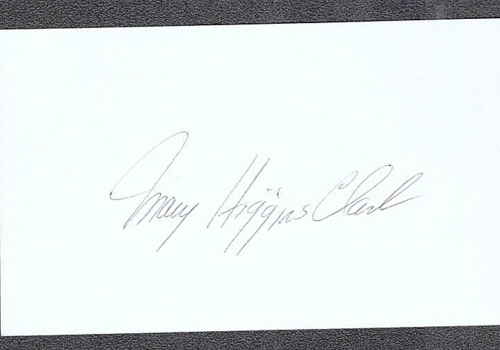 Mary Higgins Clark